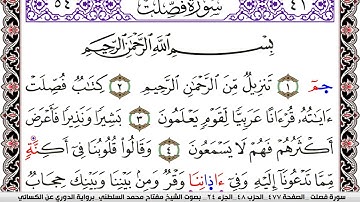 ٤١ سُورَةُ فُصِّلَتْ ٥٤
بِسْمِ ٱللَّهِ ٱلرَّحْمَٰنِ ٱلرَّحِيمِ
حمٓ ١ تَنزِيلٌ مِّنَ ٱلرَّحْمَٰنِ ٱلرَّحِيمِ ٢ كِتَٰبٌ فُصِّلَتْ
ءَايَٰتُهُۥ قُرْءَانًا عَرَبِيًّا لِّقَوْمٍ يَعْلَمُونَ ٣ بَشِيرًا وَنَذِيرًا فَأَعْرَضَ
أَكْثَرُهُمْ فَهُمْ لَا يَسْمَعُونَ ٤ وَقَالُوا۟ قُلُوبُنَا فِىٓ أَكِنَّةٍ
مِّمَّا تَدْعُونَآ إِلَيْهِ وَفِىٓ ءَاذَانِنَا وَقْرٌ وَمِنۢ بَيْنِنَا وَبَيْنِكَ حِجَابٌ
سورة فصلت الصفحة ٤٧٧ الحزب ٤٨ الجزء ٢٤ . بصوت الشيخ مفتاح محمد السلطني . برواية الدوري عن الكسائي